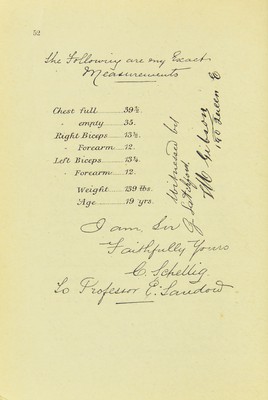 52
The Following are my Exact
Measurements
Chest full 39½.
" empty 35.
Right Biceps 13½.
" Forearm 12.
Left Biceps 13¼.
" Forearm 12.
Weight 139 lbs.
Age 19 yrs.
Witnessed by
M Gibson
190 Queen E
I am, Sir
Faithfully Yours
C. Schellig.
To Professor E. Sandow